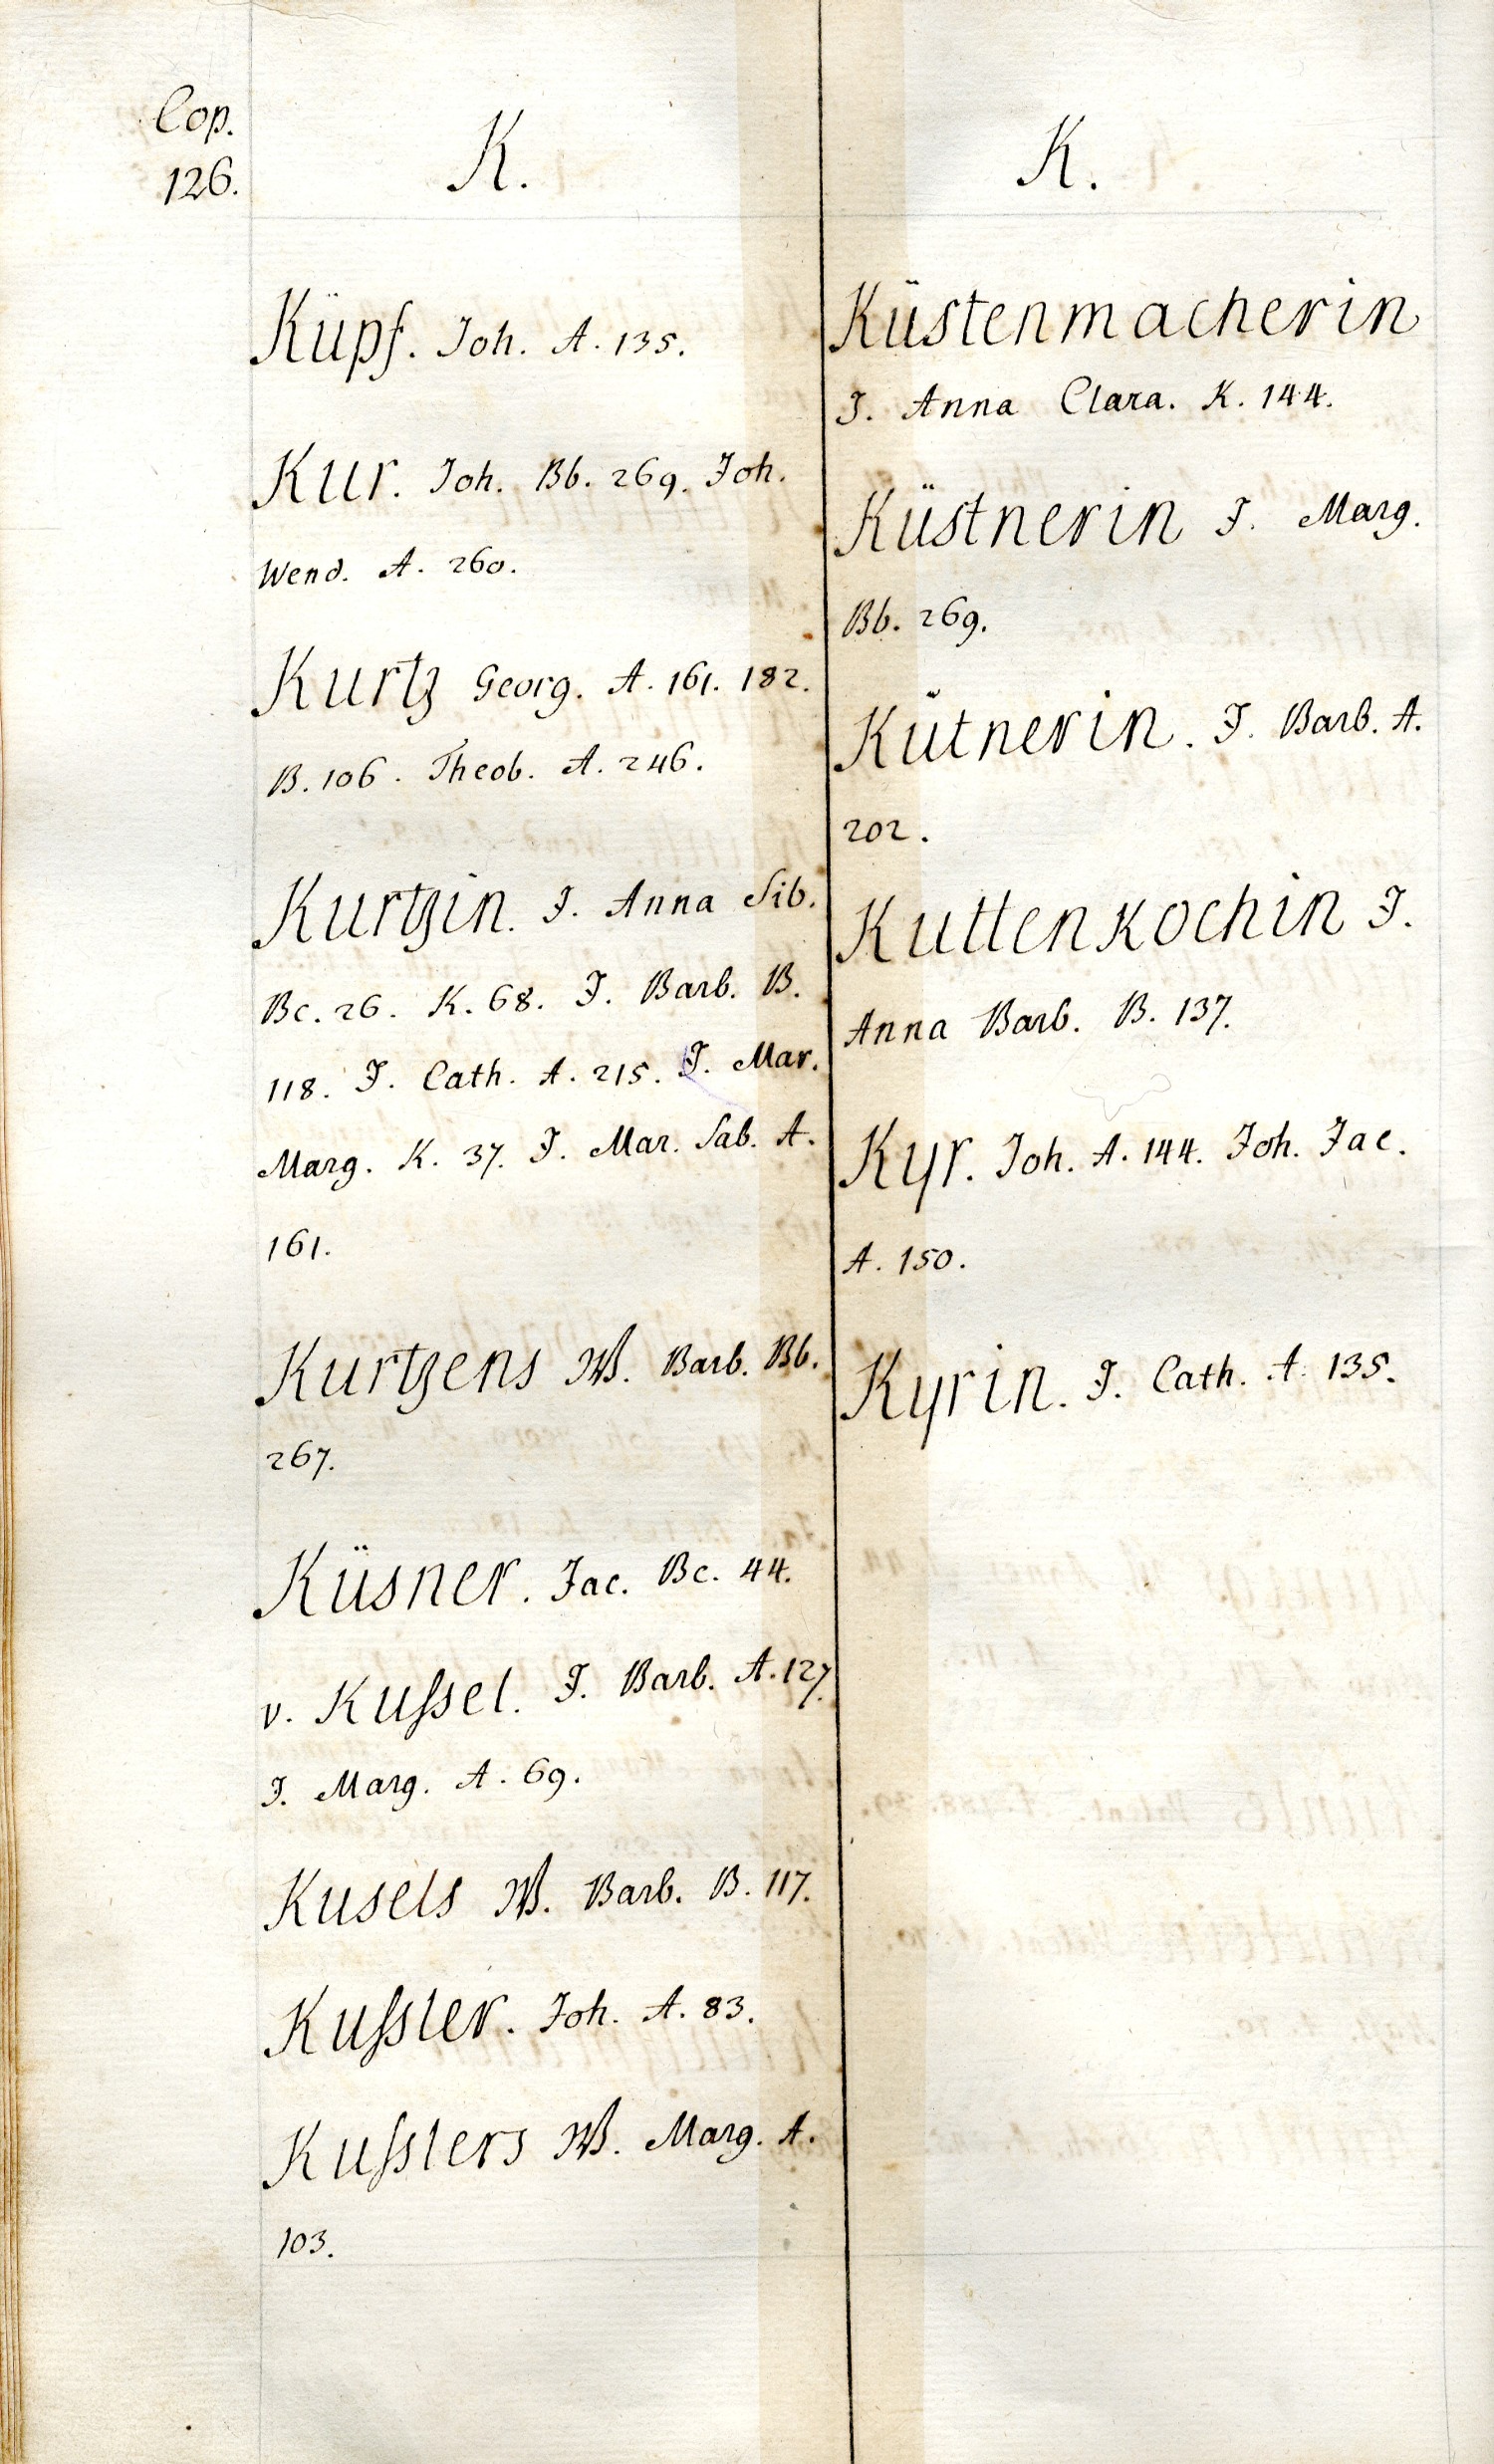 Cop.
126.
K.
Küpf. Joh. A. 135.
Kur. Joh. Bb. 269. Joh.
Wend. A. 260.
Kurtz Georg. A. 161. 182.
B. 106. Theob. A. 246.
Kurtzin. J. Anna Sib.
Bc. 26. K. 68. J. Barb. B.
118. J. Cath. A. 215. J. Mar.
Marg. K. 37. J. Mar. Sab. A.
161.
Kurtzens W. Barb. Bb.
267.
Küsner. Jac. Bc. 44.
v. Kuſsel. J. Barb. A. 127.
J. Marg. A. 69.
Kusels W. Barb. B. 117.
Kuſsler. Joh. A. 83.
Kuſslers W. Marg. A.
103.
K.
Küstenmacherin
J. Anna Clara. K. 144.
Küstnerin J. Marg.
Bb. 269.
Kütnerin. J. Barb. A.
202.
Kuttenkochin J.
Anna Barb. B. 137.
Kyr. Joh. A. 144. Joh. Jac.
A. 150.
Kyrin. J. Cath. A. 135.